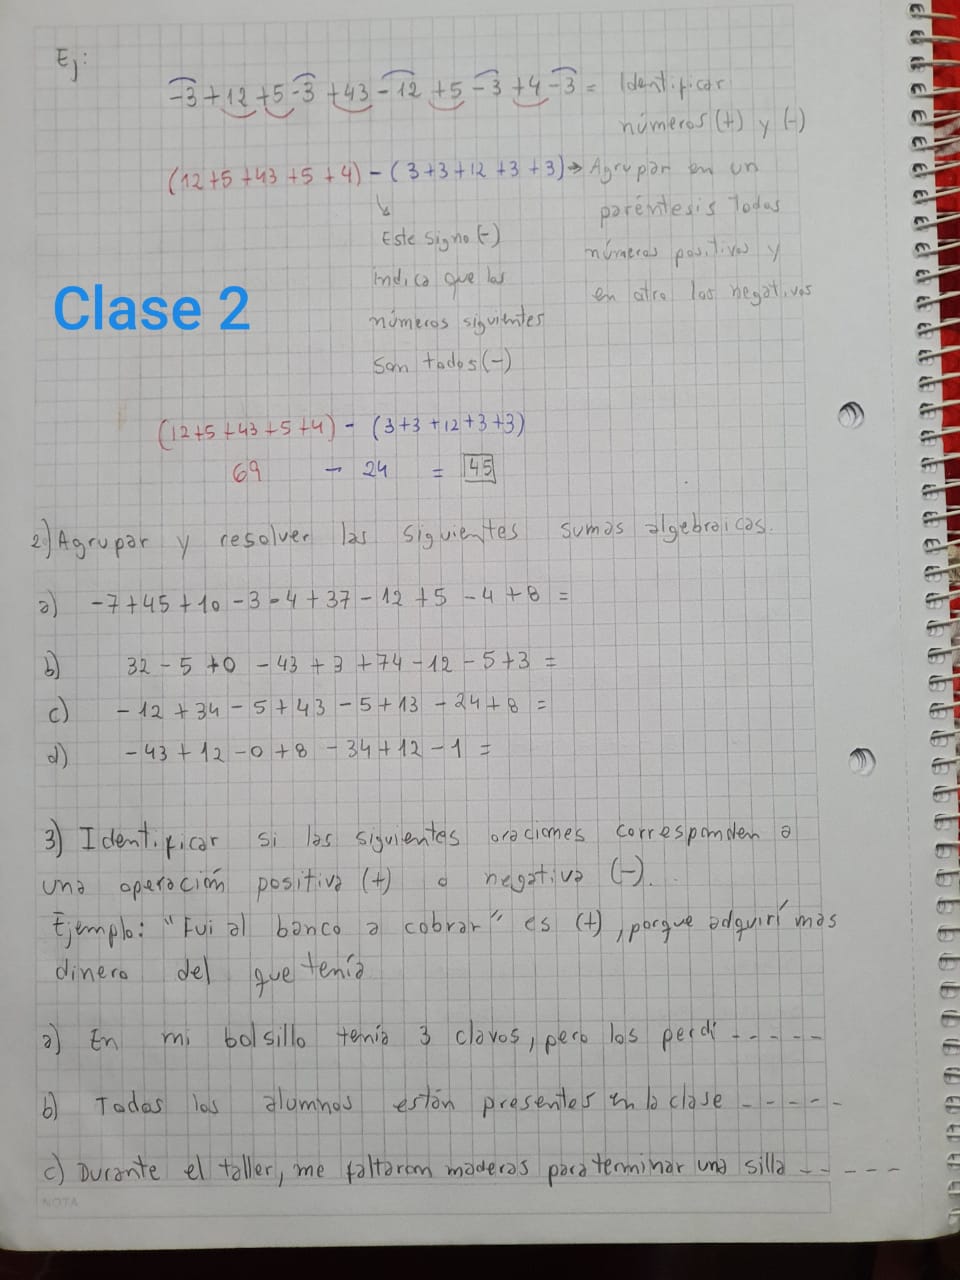 Ej:
-3+12+5-3+43-12+5-3+4-3= Identificar
números (+) y (-)
(12+5+43+5+4)-(3+3+12+3+3)→ Agrupar en un
paréntesis todos
Este signo(-)
números positivos y
indica que los
en otro los negativos
Clase 2
números siguientes
son todos(-)
(12+5+43+5+4)-(3+3+12+3+3)
69 - 24 = 45
2) Agrupar y resolver las siguientes sumas algebraicas.
a) -7+45+10-3-4+37-12+5-4+8=
b) 32-5+0-43+3+74-12-5+3=
c) -12+34-5+43-5+13-24+8=
d) -43+12-0+8-34+12-1=
3) Identificar si las siguientes oraciones corresponden a
una operación positiva (+) o negativa (-).
Ejemplo: "Fui al banco a cobrar" es (+), porque adquirí mas
dinero del que tenía
a) En mi bolsillo tenía 3 clavos, pero los perdí -----
b) Todos los alumnos están presentes en la clase -----
c) Durante el taller, me faltaron maderas para terminar una silla -----
NOTA